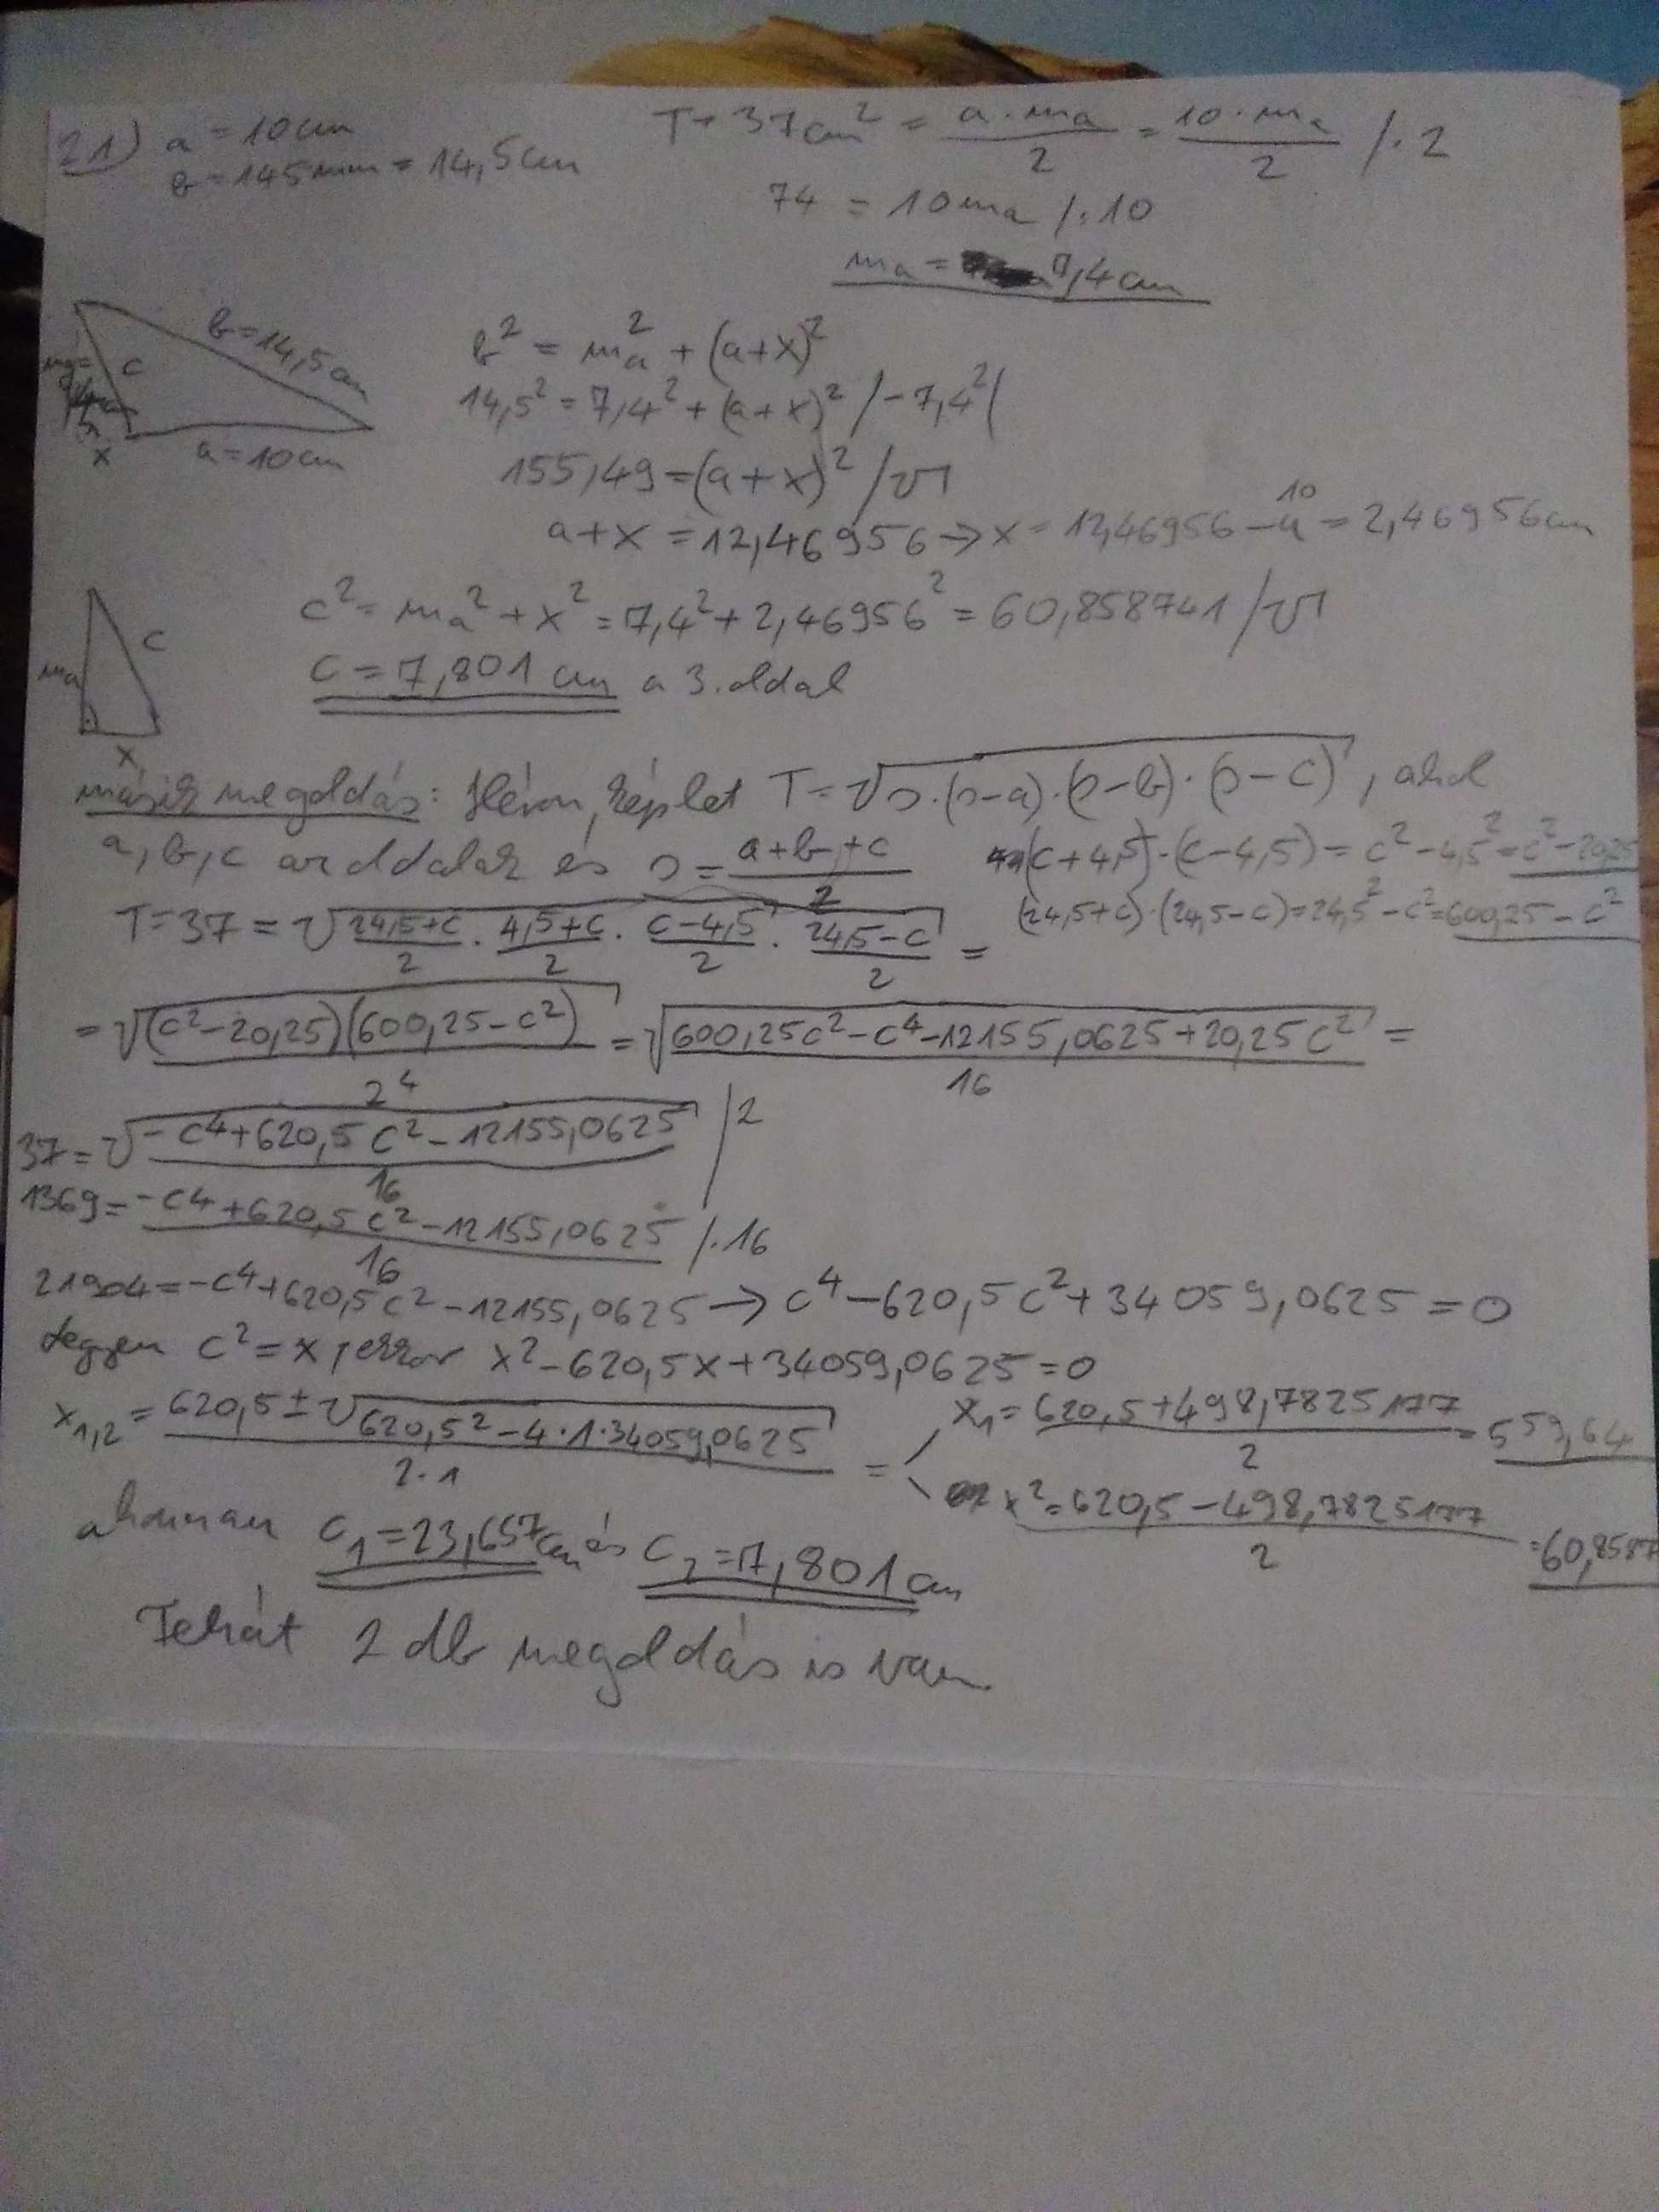 21) a = 10 cm
b = 145 mm = 14,5 cm
T = 37 cm² = a · mₐ / 2 = 10 · mₐ / 2 /· 2
74 = 10 mₐ /: 10
mₐ = 7,4 cm
b = 14,5 cm
c
x
a = 10 cm
b² = mₐ² + (a+x)²
14,5² = 7,4² + (a+x)² / -7,4²
155,49 = (a+x)² /√
a+x = 12,46956 → x = 12,46956 - a = 2,46956 cm
10
mₐ
c
x
c² = mₐ² + x² = 7,4² + 2,46956² = 60,858741 /√
c = 7,801 cm a 3. oldal
másik megoldás: Héron képlet T = √s·(s-a)·(s-b)·(s-c), ahol
a, b, c az oldalak és s = a+b+c / 2
(c+4,5)·(c-4,5) = c² - 4,5² = c² - 20,25
(24,5+c)·(24,5-c) = 24,5² - c² = 600,25 - c²
T = 37 = √24,5+c / 2 · 4,5+c / 2 · c-4,5 / 2 · 24,5-c / 2 =
= √(c²-20,25)(600,25-c²) / 2⁴ = √600,25c² - c⁴ - 12155,0625 + 20,25c² / 16 =
37 = √-c⁴ + 620,5c² - 12155,0625 / 16 /²
1369 = -c⁴ + 620,5c² - 12155,0625 / 16 /· 16
21904 = -c⁴ + 620,5c² - 12155,0625 → c⁴ - 620,5c² + 34059,0625 = 0
legyen c² = x, ekkor x² - 620,5x + 34059,0625 = 0
x₁,₂ = 620,5 ± √620,5² - 4·1·34059,0625 / 2·1 =
x₁ = 620,5 + 498,7825177 / 2 = 559,64
x² = 620,5 - 498,7825177 / 2 = 60,8587
ahonnan c₁ = 23,657 cm és c₂ = 7,801 cm
Tehát 2 db megoldás is van